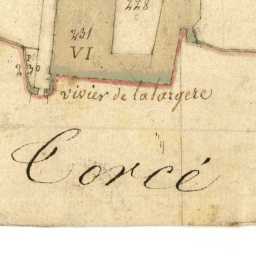 228
231
VI
230
vivier de la largere
Corcé